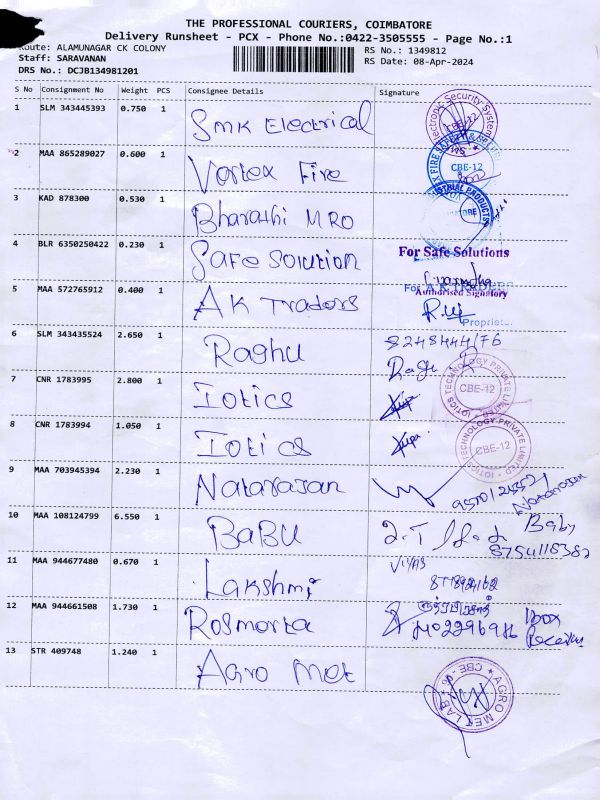 THE PROFESSIONAL COURIERS, COIMBATORE
Delivery Runsheet - PCX - Phone No.:0422-3505555 - Page No.:1
Route: ALAMUNAGAR CK COLONY
RS No.: 1349812
Staff: SARAVANAN
RS Date: 08-Apr-2024
DRS No.: DCJB134981201
S No Consignment No Weight PCS Consignee Details Signature
1 SLM 343445393 0.750 1 SMK Electrical
Electronic Security System
CBE-12
2 MAA 865289027 0.600 1 Vortex Fire
CBE-12
3 KAD 878300 0.530 1 Bharathi MRO
PRODUCTS
4 BLR 6350250422 0.230 1 Safe Solution
For Safe Solutions
Authorised Signatory
5 MAA 572765912 0.400 1 AK Traders
For A.K TRADERS
Proprietor
6 SLM 343435524 2.650 1 Raghu
7 CNR 1783995 2.800 1 Iotics
IOTICS TECHNOLOGY PRIVATE LIMITED
CBE-12
8 CNR 1783994 1.050 1 Iotics
IOTICS TECHNOLOGY PRIVATE LIMITED
CBE-12
9 MAA 703945394 2.230 1 Natarasan
Natarasan
10 MAA 108124799 6.550 1 BaBU
Baby
11 MAA 944677480 0.670 1 Lakshmi
12 MAA 944661508 1.730 1 Rosmorta
Box
13 STR 409748 1.240 1 Agro Met
AGRO MET LAB